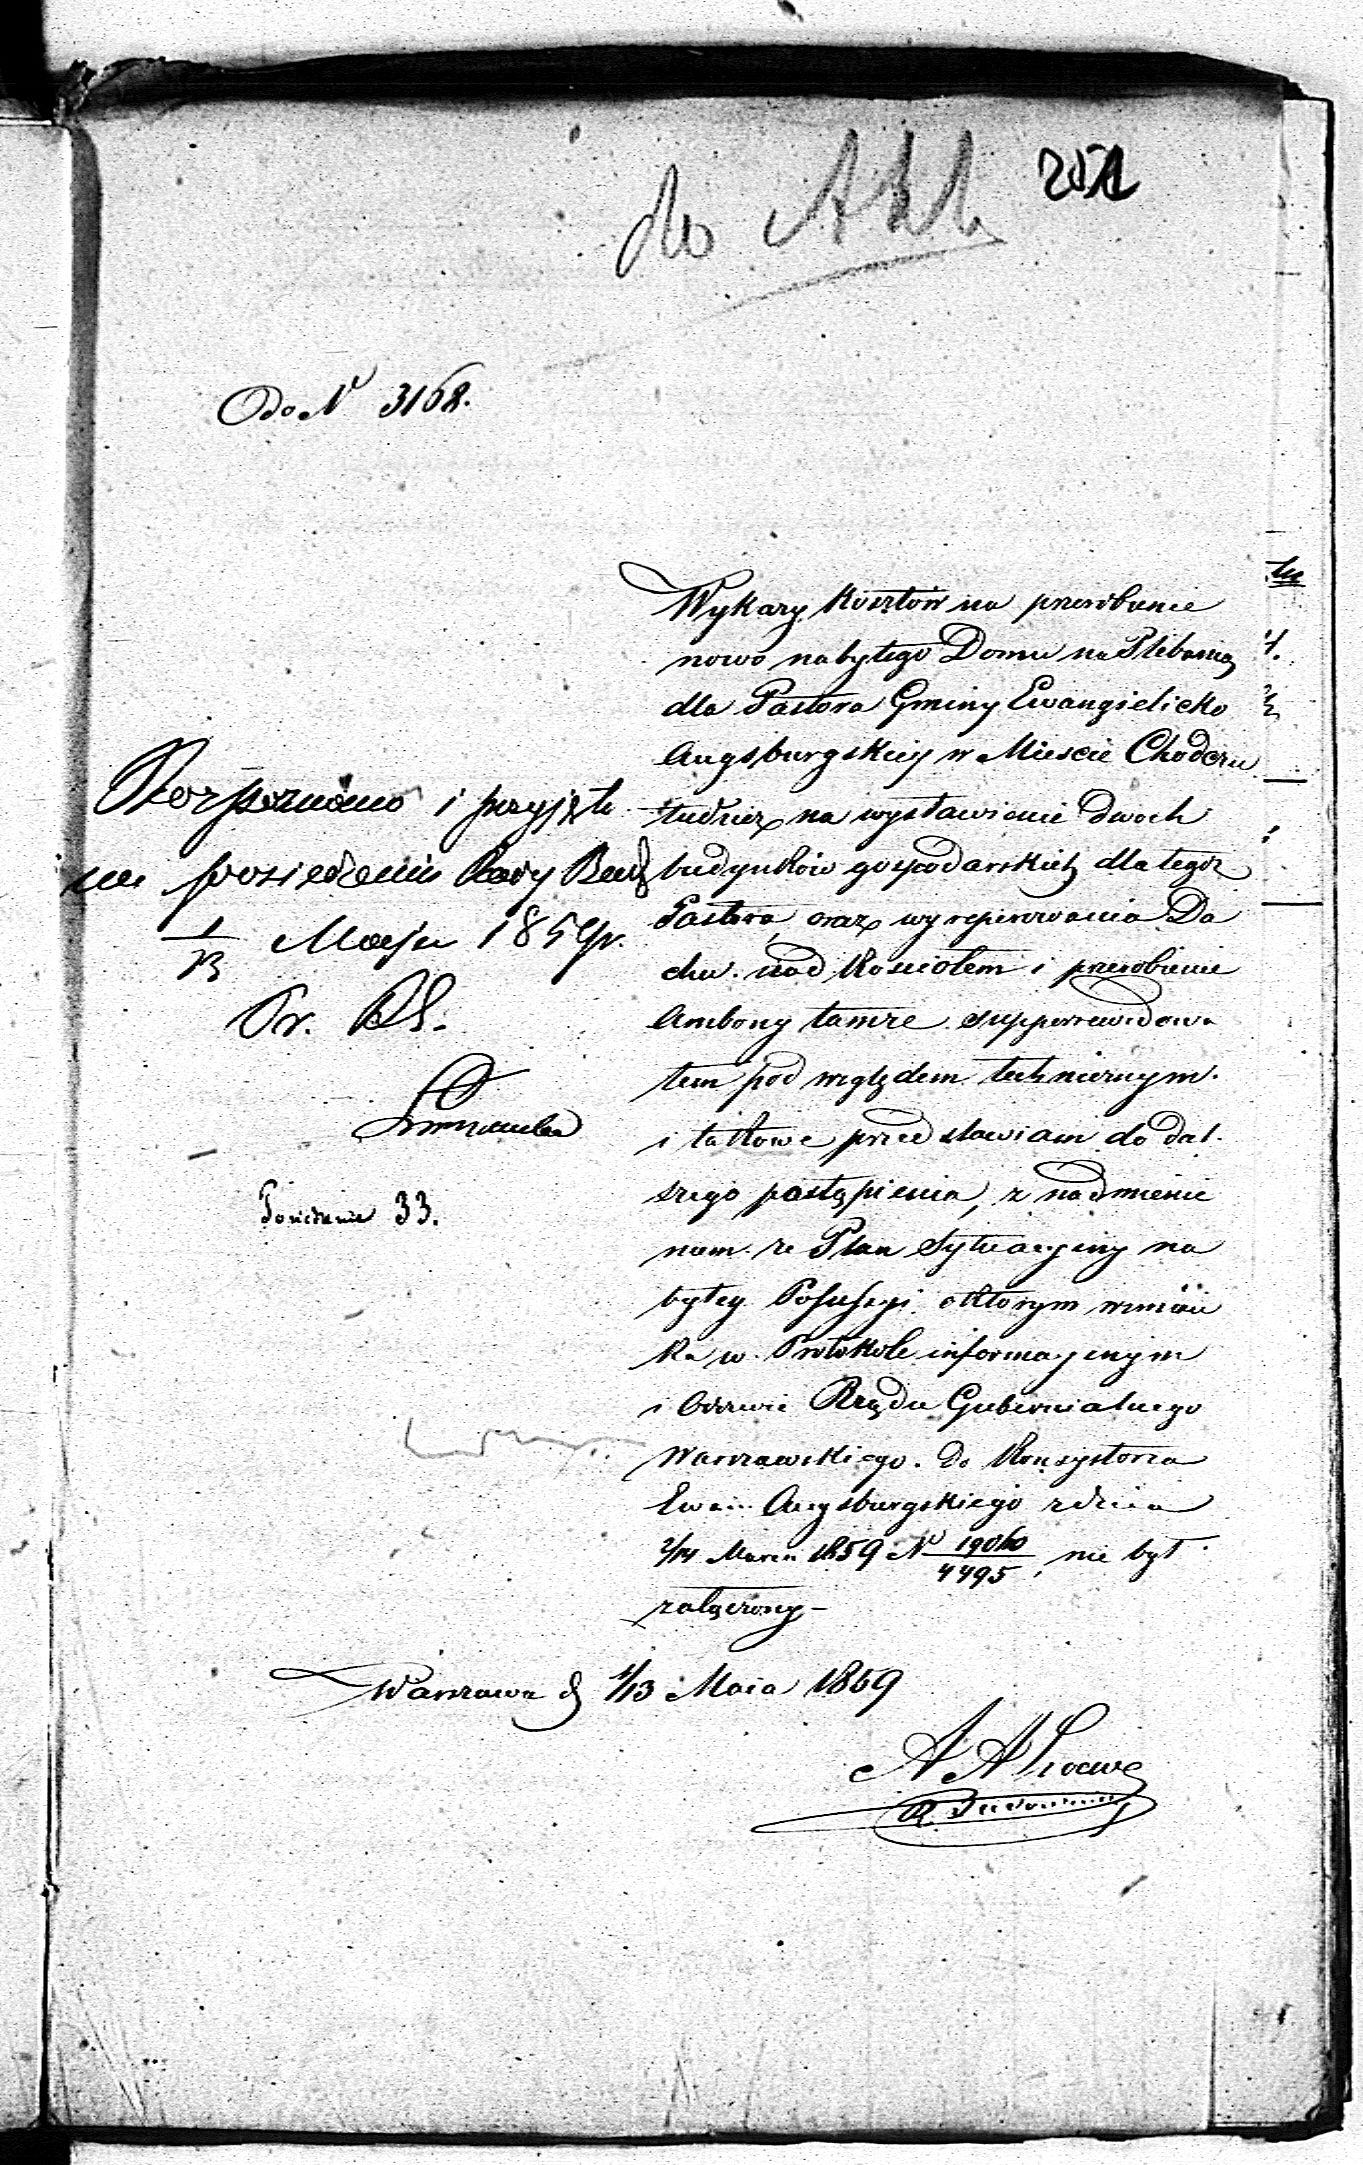 do Akt
251
Do N 3168.
Wykazy Kosztów na przerobienie
nowo nabytego Domu na Plebanią
dla Pastora Gminy Ewangielicko
Augsburgskiey w Miescie Chodczu
tudzież na wystawienie dwoch
budynków gospodarskich dla tegoż
Pastora, oraz wyreperowania Da
chu nad Kosciołem i przerobienie
Ambony tamże superrewidowa
łem pod względem technicznym
i takowe przedstawiam do dal
szego postąpienia, z nadmienie
niem że Plan Sytuacyjny na
bytey Possessyi o którym wzmian
ka w Protokole informacyjnym
i Odezwie Rządu Gubernialnego
Warszawskiego do Konsystorza
Ewan Augsburgskiego z dnia
2/14 Marca 1859 N 19060/4495, nie był
załączony –
Warszawa d 1/13 Maia 1859
A A Loewe
R.
Rozpoznano i przyjęto
na posiedzeniu Rady Bud
1/13 Maja 1859 r.
Pr. RB.
Posiedzenie 33.